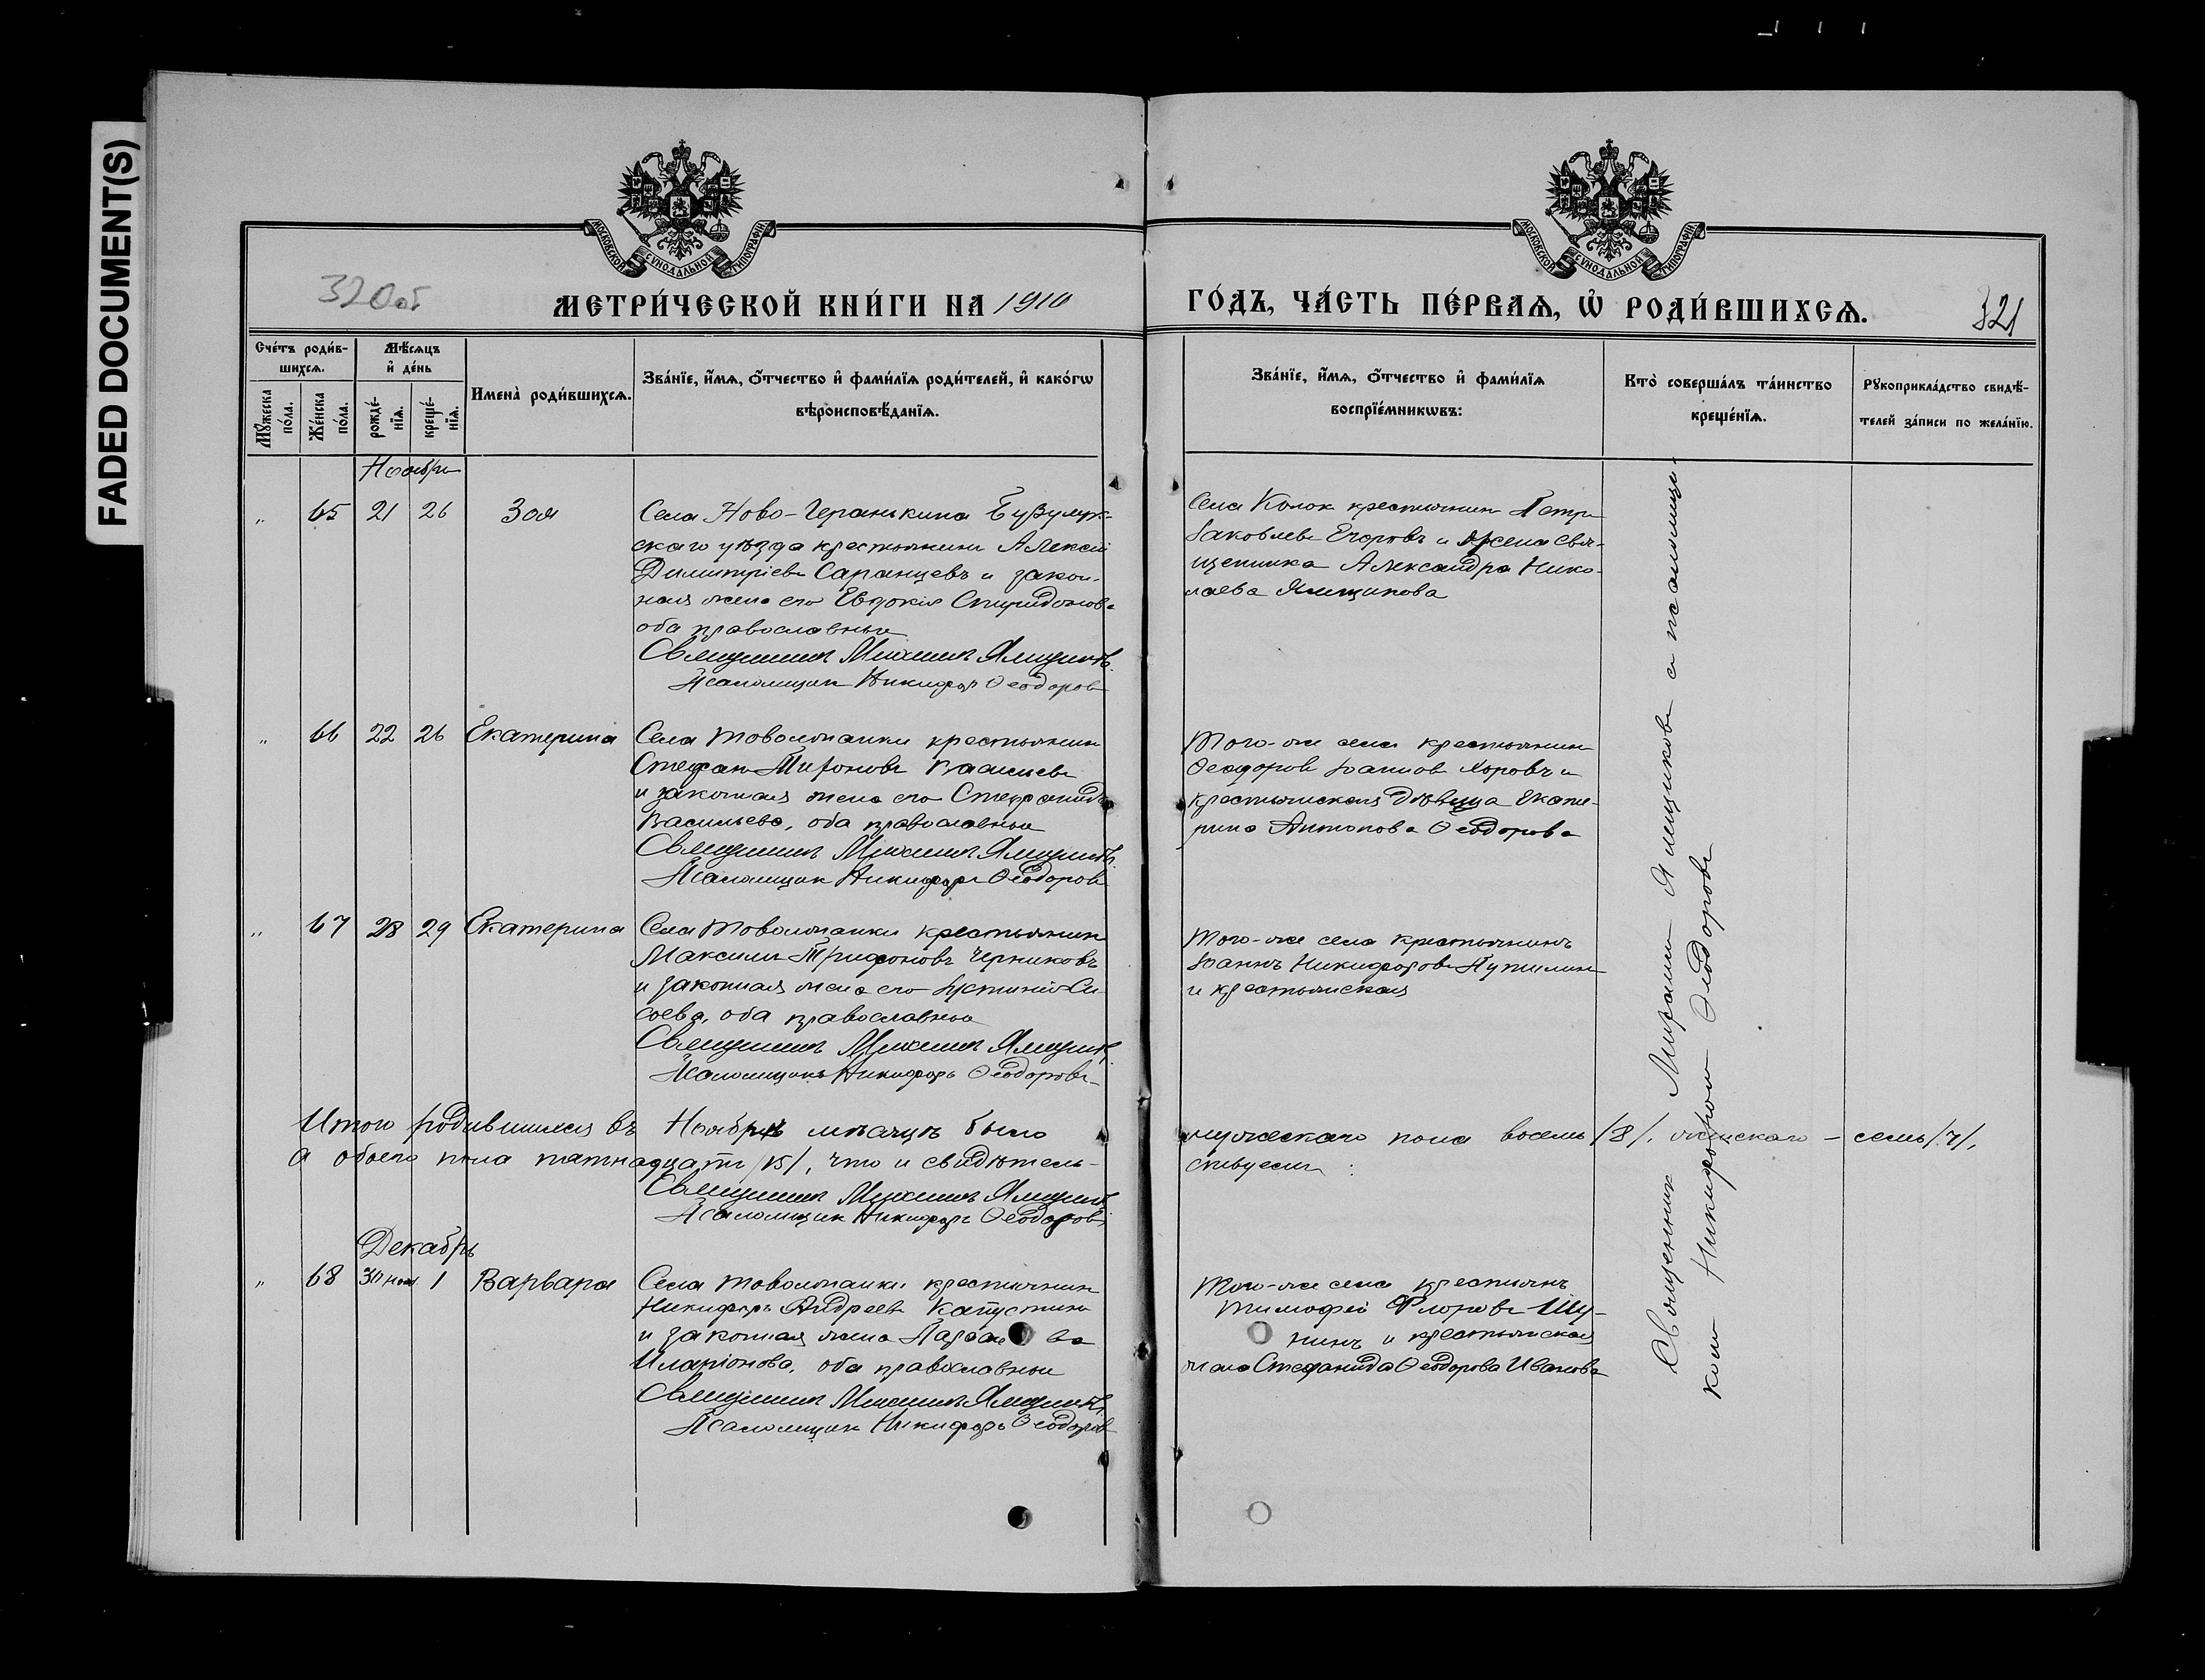 FADED DOCUMENT(S)
МОСКОВСКОЙ СѴНОДАЛЬНОЙ ТИПОГРАФІИ
МОСКОВСКОЙ СѴНОДАЛЬНОЙ ТИПОГРАФІИ
320об
МЕТРИ́ЧЕСКОЙ КНИ́ГИ НА 1910
ГО́ДЪ, ЧА́СТЬ ПЕ́РВАѦ, Ѡ҆ РОДИ́ВШИХСѦ.
321
Сче́тъ роди́в-
шихсѧ.
Мꙋ́жеска по́ла.
Же́нска по́ла.
Мѣ́сѧцъ
и҆ де́нь
рожде́-
нїѧ.
креще́-
нїѧ.
Имена̀ роди́вшихсѧ.
Зва́нїе, и҆́мѧ, ѻ҆́тчество и҆ фами́лїѧ роди́телей, и҆ како́гѡ
вѣроисповѣ́данїѧ.
Зва́нїе, и҆́мѧ, ѻ҆́тчество и҆ фами́лїѧ
воспрїе́мникѡвъ:
Кто̀ соверша́лъ та́инство
креще́нїѧ.
Рꙋкоприкла́дство свидѣ́-
телей за́писи по жела́нїю.
Ноябрь
„ 65 21 26 Зоя
Села Ново-Геранькина Бузулук-
скаго уѣзда крестьянинъ Алексій
Димитріевъ Саранцевъ и закон-
ная жена его Евдокія Спиридонова
оба православные
Священникъ Михаилъ Ямщиковъ
Псаломщикъ Никифоръ Ѳеодоровъ
Села Колок крестьянинъ Петръ
Іаковлевъ Егоровъ и жена свя-
щенника Александра Нико-
лаева Ямщикова
„ 66 22 26 Екатерина
Села Товолжанки крестьянинъ
Стефанъ Мироновъ Васильевъ
и законная жена его Стефанида
Васильева, оба православные
Священникъ Михаилъ Ямщиковъ
Псаломщикъ Никифоръ Ѳеодоровъ
Того-же села крестьянинъ
Ѳеодоровъ Іоанновъ Хоровъ и
крестьянская дѣвица Екате-
рина Антонова Ѳеодорова
„ 67 28 29 Екатерина
Села Товолжанки крестьянинъ
Максимъ Трифоновъ Черниковъ
и законная жена его Іустинія Си-
соева, оба православные
Священникъ Михаилъ Ямщиковъ
Псаломщикъ Никифоръ Ѳеодоровъ
Того-же села крестьянинъ
Іоаннъ Никифоровъ
и крестьянская
Итого родившихся въ Ноябрѣ мѣсяцѣ было
мужескаго пола восемь /8/, женскаго – семь /7/,
а обоего пола пятнадцать /15/, что и свидѣтель-
ствуемъ:
Священникъ Михаилъ Ямщиковъ
Псаломщикъ Никифоръ Ѳеодоровъ
Декабрь
„ 68 30 ноя. 1 Варвара
Села Товолжанки крестьянинъ
Никифоръ Андреевъ Капустинъ
и законная жена
Иларіонова, оба православные
Священникъ Михаилъ Ямщиковъ
Псаломщикъ Никифоръ Ѳеодоровъ
Того-же села крестьянинъ
Тимофей Флоровъ Шу-
нинъ и крестьянская
жена Стефанида Ѳеодорова Иванова
Священникъ Михаилъ Ямщиковъ съ псаломщи-
комъ Никифоромъ Ѳеодоровымъ